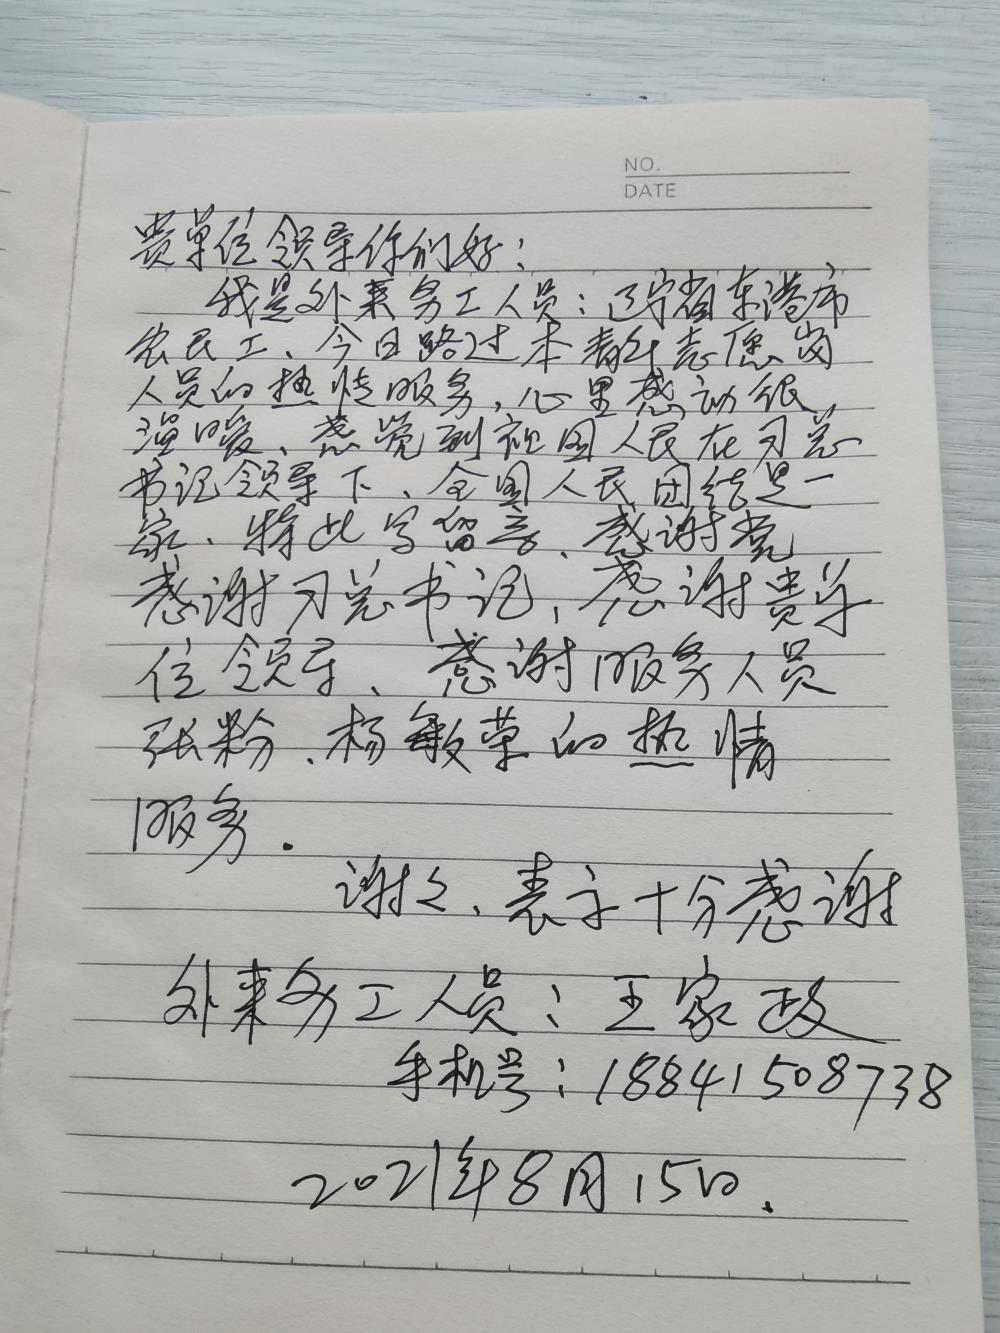 NO.
DATE
贵单位领导你们好：
我是外来务工人员：辽宁省东港市
农民工、今日路过本青年志愿岗
人员的热情服务，心里感动很
温暖、感觉到祖国人民在习总
书记领导下、全国人民团结是一
家、特此写留言、感谢党
感谢习总书记，感谢贵单
位领导、感谢服务人员
张粉、杨敏草的热情
服务.
谢之、表示十分感谢
外来务工人员：王家政
手机号：18841508738
2021年8月15日.